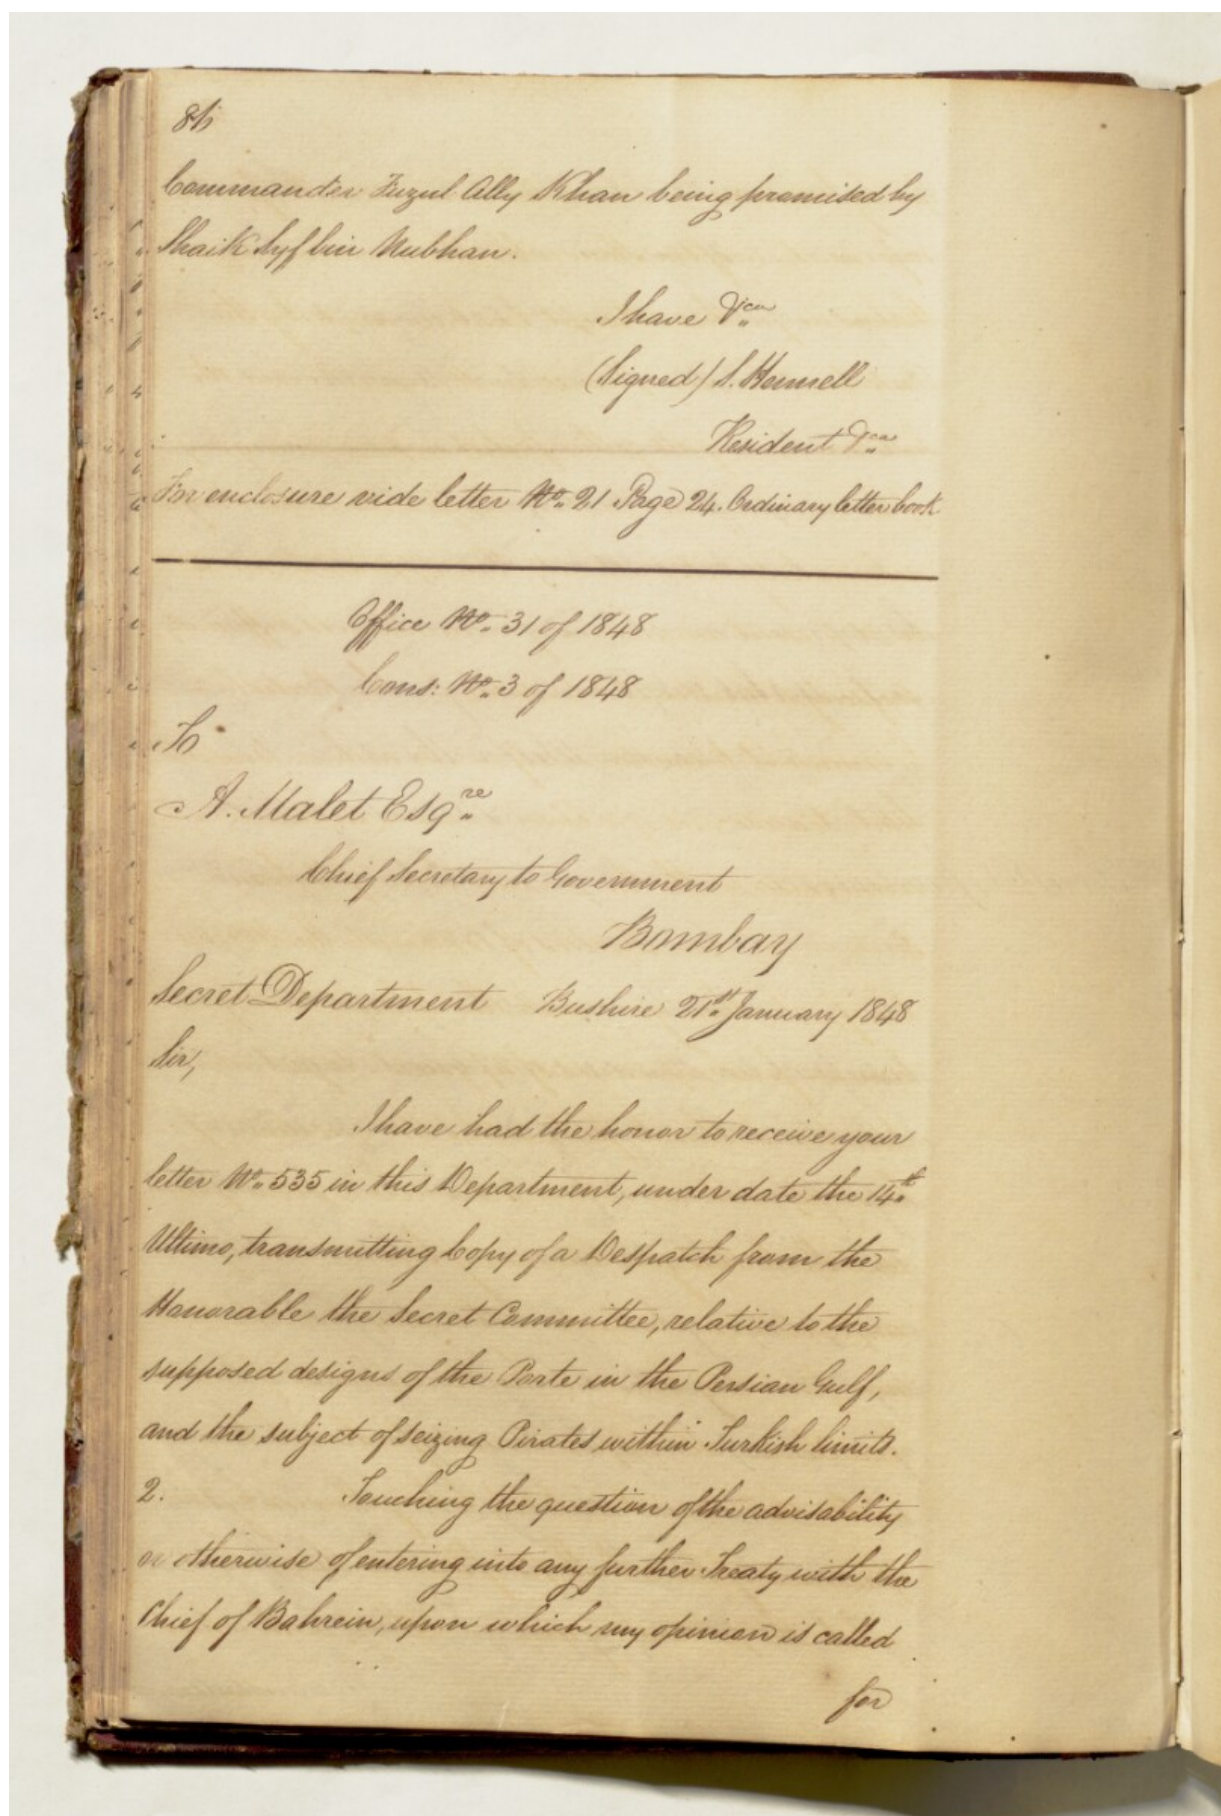 86
Commander Fuzul Ally Khan being promised by
Shaik Syf bin Nubhan.
I have &ca
(Signed) S. Hennell
Resident &ca
For enclosure vide letter No. 21 Page 24. Ordinary letter book
Office No. 31 of 1848
Cons: No. 3 of 1848
To
A. Malet Esqre
Chief Secretary to Government
Bombay
Secret Department Bushire 21st January 1848
Sir,
I have had the honor to receive your
letter No. 535 in this Department, under date the 14th
Ultimo, transmitting Copy of a Despatch from the
Honorable the Secret Committee, relative to the
supposed designs of the Porte in the Persian Gulf,
and the subject of seizing Pirates within Turkish limits.
2. Touching the question of the advisability
or otherwise of entering into any further Treaty with the
Chief of Bahrein, upon which my opinion is called
for